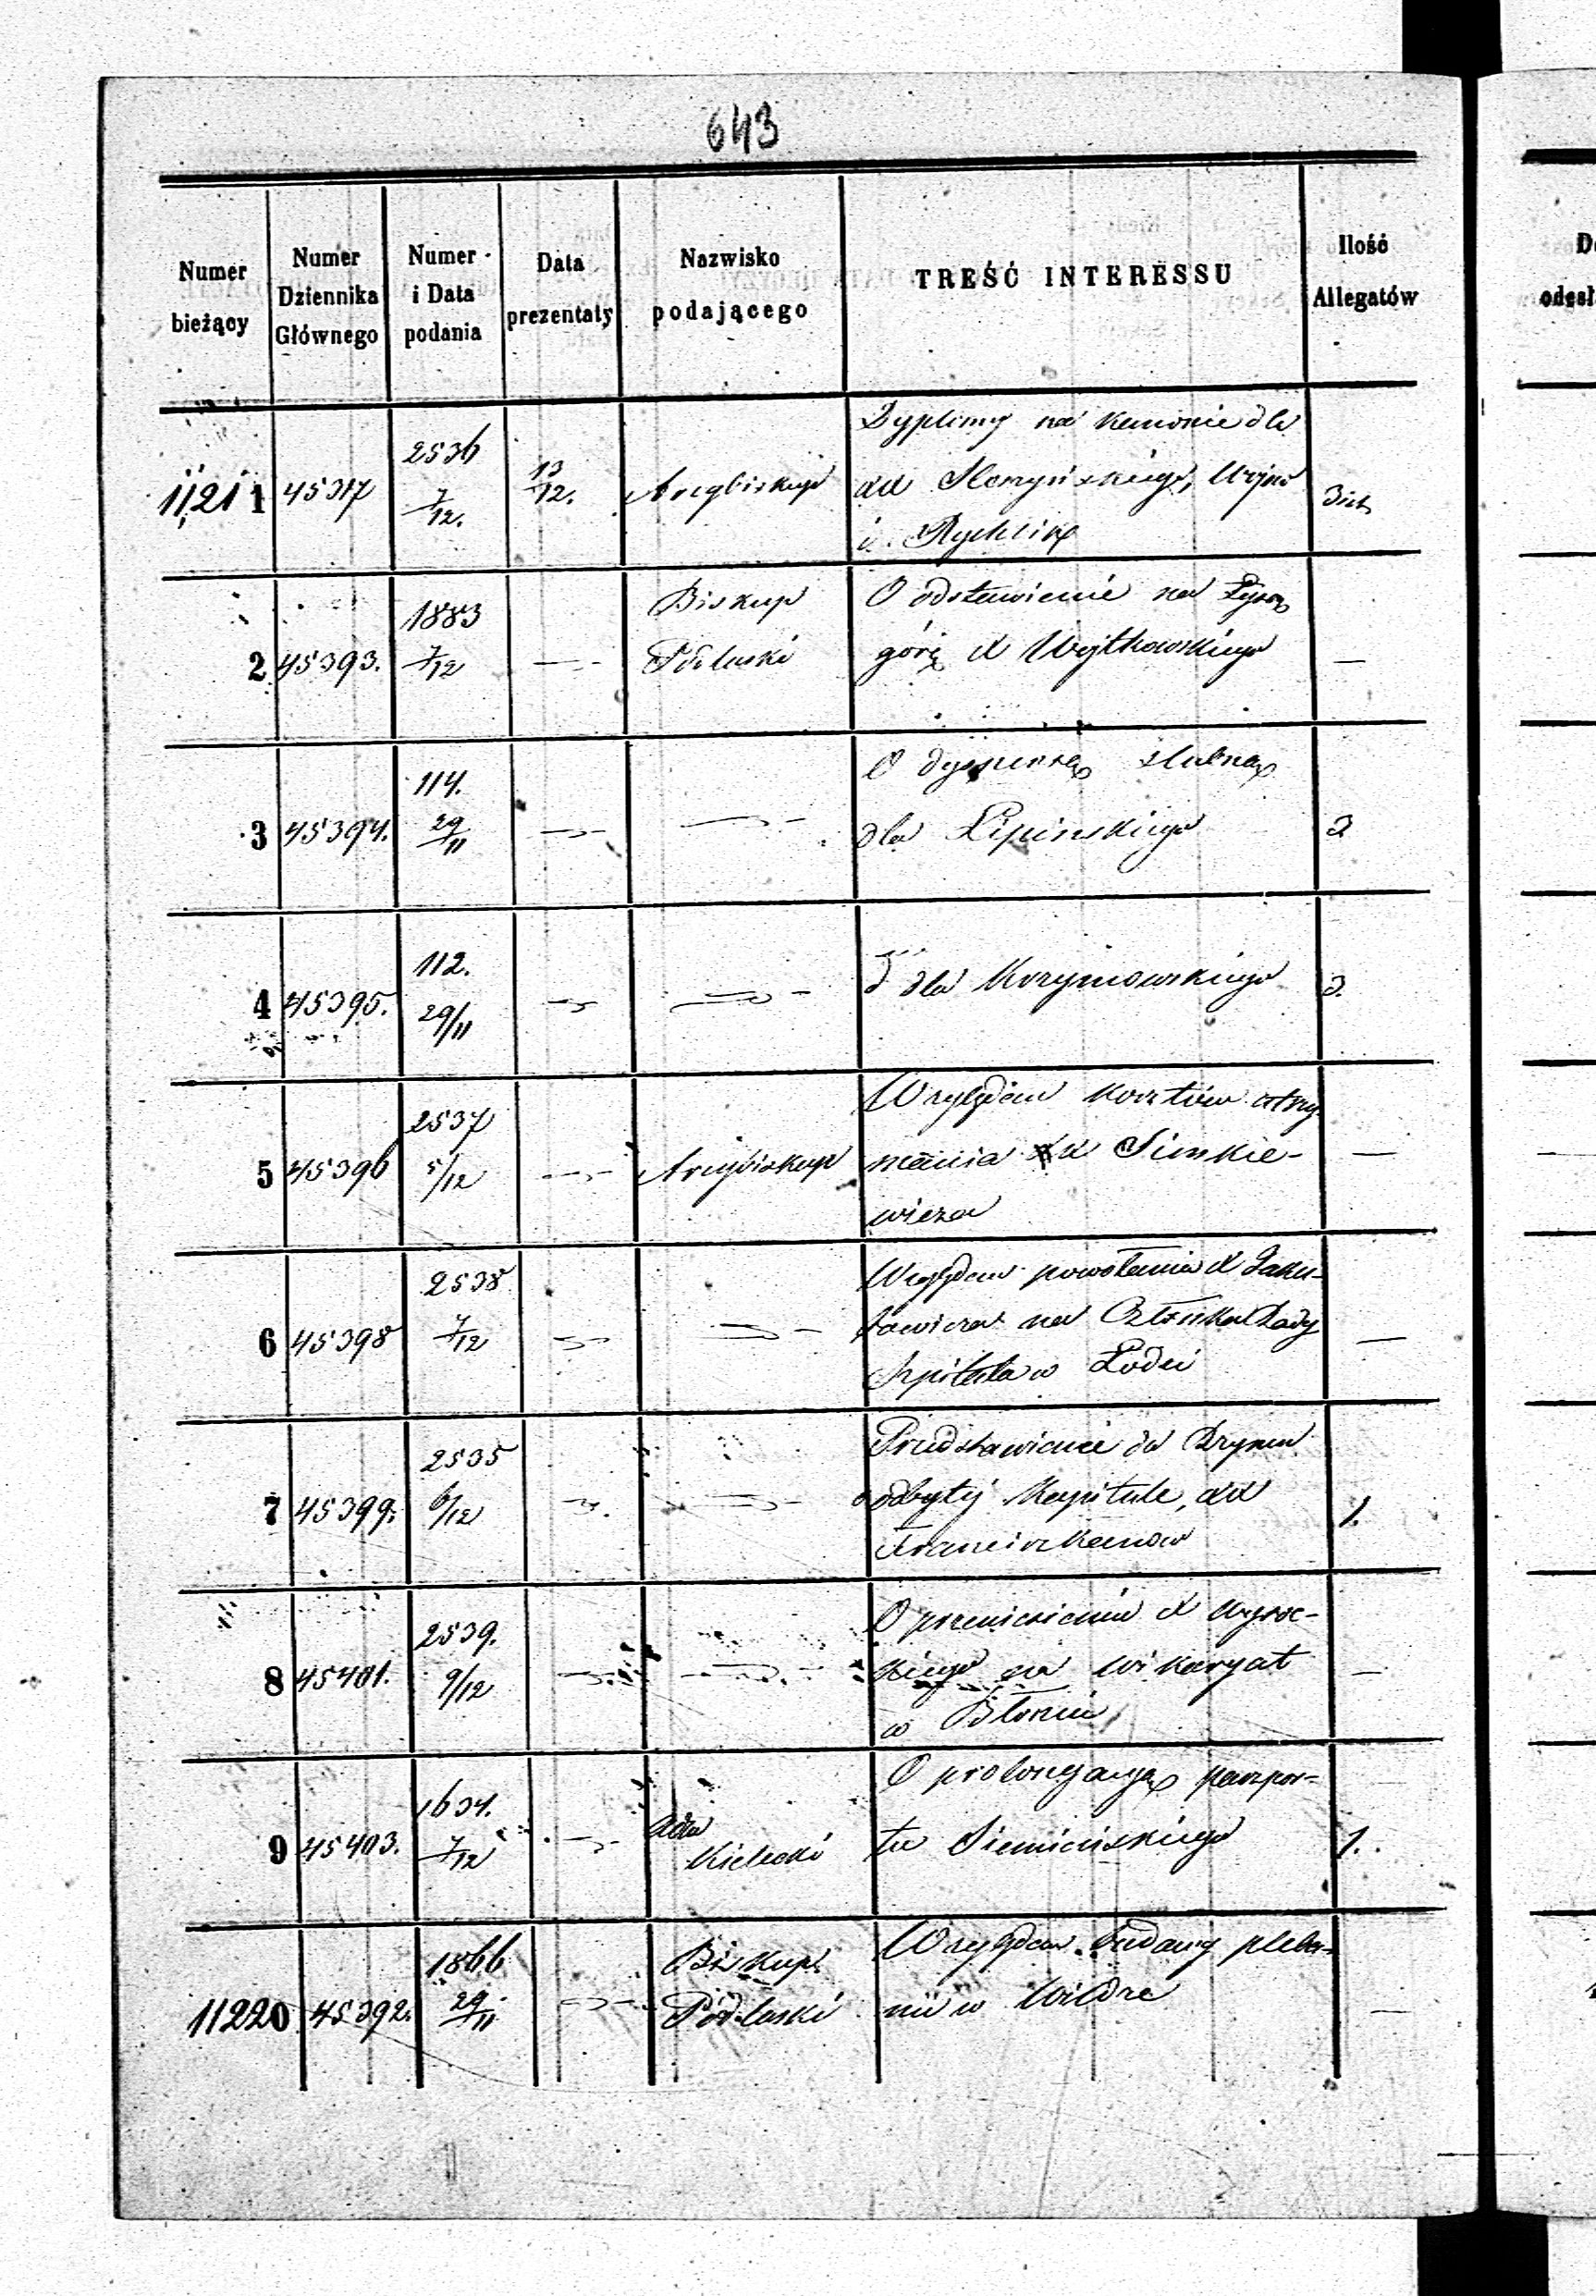 643
Numer bieżący
Numer Dziennika Głównego
Numer i Data podania
Data prezentaty
Nazwisko podającego
TREŚĆ INTERESSU
Ilość Allegatów
11,211 45317 2536 7/12. 13/12. Arcybiskup
Dyplomy na kanonie dla
XX
i Rychlika
2 45393. 1883 7/12 Biskup Podlaski
O odstawienie na Łysą
górę X Wojtkowskiego —
3 45394. 114. 29/11
O dyspensę ślubną
dla Lipińskiego 2
4 45395. 112. 29/11
d dla 2.
5 45396 2537 5/12 Arcybiskup
Względem kosztów utrzy-
mania X Simkie- —
wicza
6 45398 2538 7/12
Względem powołania X Jaku-
bowicza na Członka Rady —
Szpitala w Łodzi
7 45399. 2535 6/12
Przedstawienie do
odbytej Kapitule, XX 1.
Franciszkanów
8 45401. 2539. 9/12
O przeniesieniu X Wysoc-
kiego na wikaryat —
w Błoniu
9 45403. 1634. 7/12 Kielecki
O prolongacyę paszpor-
tu Siemieńskiego 1.
11220 45392. 1866 29/11 Biskup Podlaski
Względem budowy pleba-
nii w —